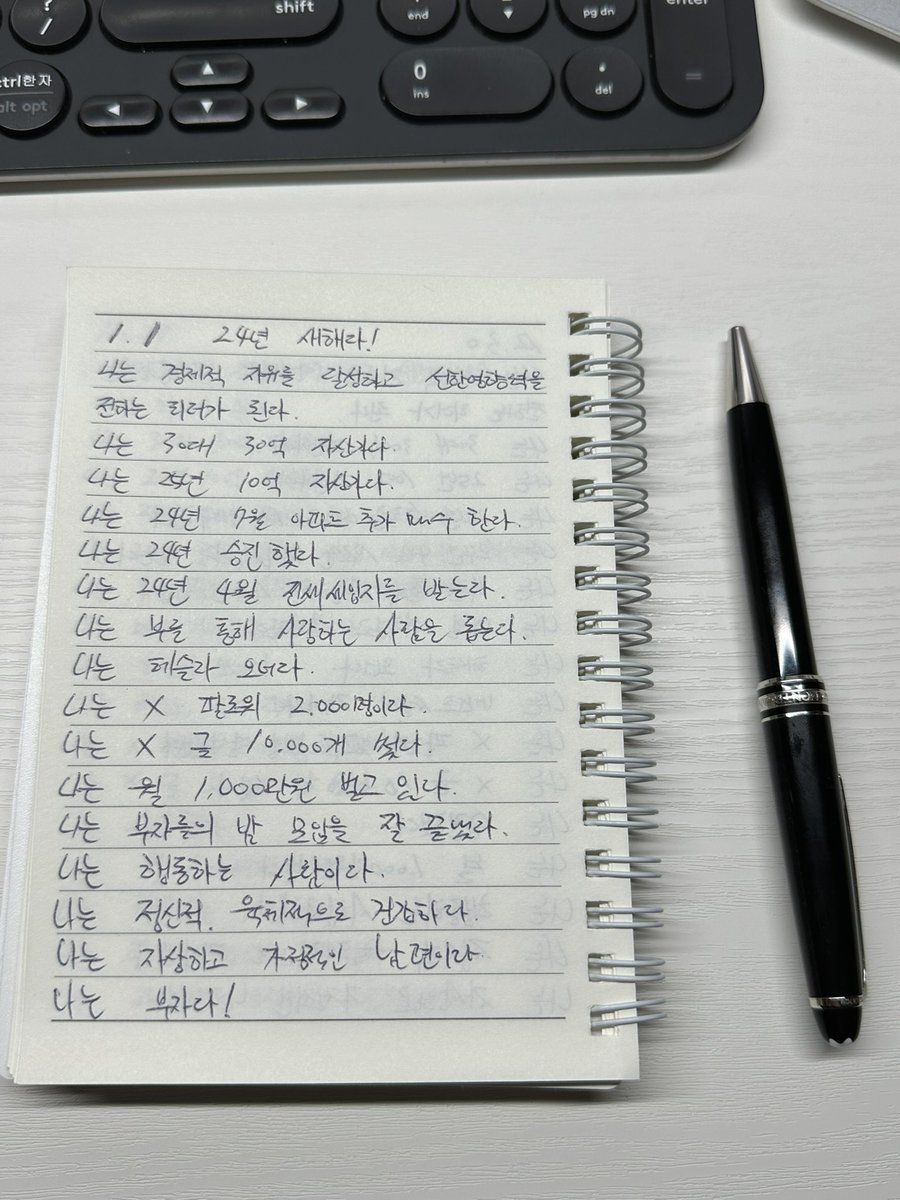 ?
/
shift
end
▼
pg dn
enter
=
ctrl한자
alt opt
▲
◀
▼
▶
0
ins
.
del
1.1 24년 새해다!
나는 경제적 자유를 달성하고 선한영향력을
전하는 리더가 된다.
나는 30대 30억 자산가다.
나는 25년 10억 자산가다.
나는 24년 7월 아파트 추가 매수 한다.
나는 24년 승진했다.
나는 24년 4월 전세세입자를 받는다.
나는 부를 통해 사랑하는 사람을 돕는다.
나는 테슬라 오너다.
나는 X 팔로워 2,000명이다.
나는 X 글 10,000개 썼다.
나는 월 1,000만원 벌고 있다.
나는 부자들의 밤 모임을 잘 끝냈다.
나는 행동하는 사람이다.
나는 정신적, 육체적으로 건강하다.
나는 자상하고 가정적인 남편이다.
나는 부자다!